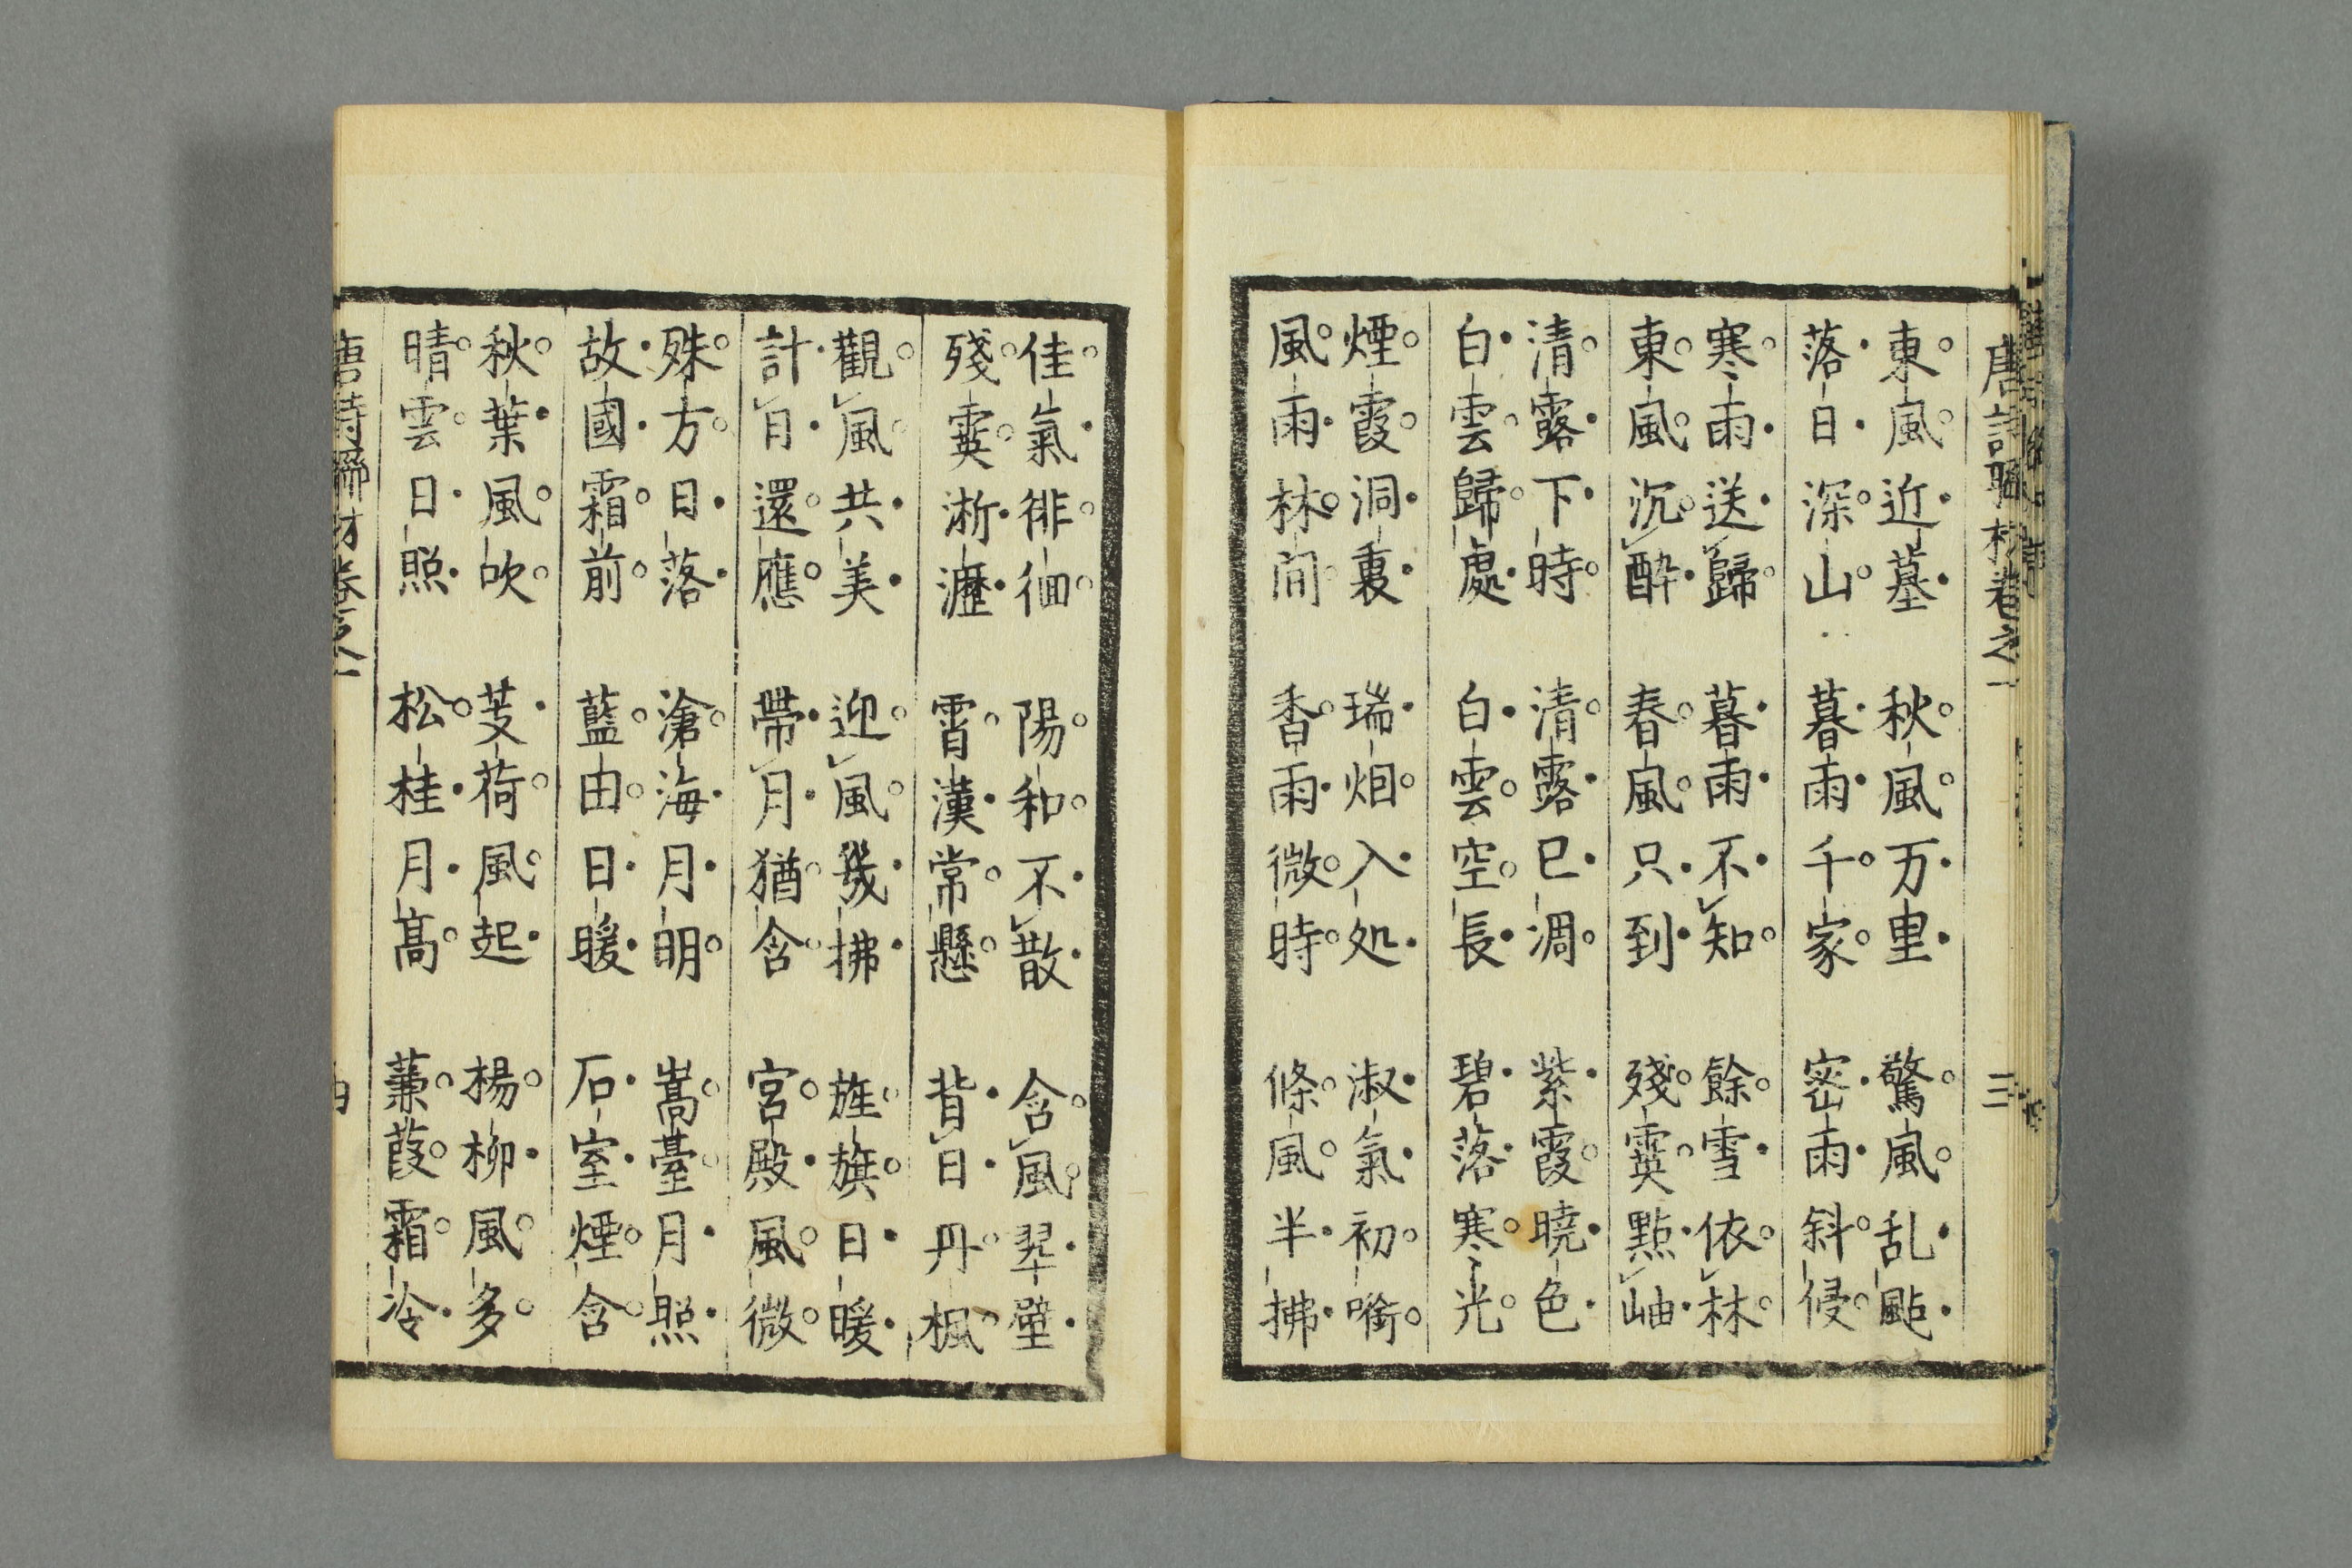 唐詩聯材卷之一 三
東風近墓 秋風万里 驚風乱颭
落日深山 暮雨千家 密雨斜侵
寒雨送歸 暮雨不知 餘雪依林
東風沉酔 春風只到 殘霙點岫
清露下時 清露已凋 紫霞曉色
白雲歸處 白雲空長 碧落寒光
煙霞洞裏 瑞烟入処 淑氣初銜
風雨林間 香雨微時 條風半拂
佳氣徘徊 陽和不散 含風翠壁
殘霙淅瀝 霄漢常懸 背日丹楓
觀風共美 迎風幾拂 旌旗日暖
計日還應 帶月猶含 宮殿風微
殊方日落 滄海月明 嵩臺月照
故國霜前 藍田日暖 石室煙含
秋葉風吹 芰荷風起 楊柳風多
晴雲日照 松桂月高 蒹葭霜冷
唐詩聯材卷之一